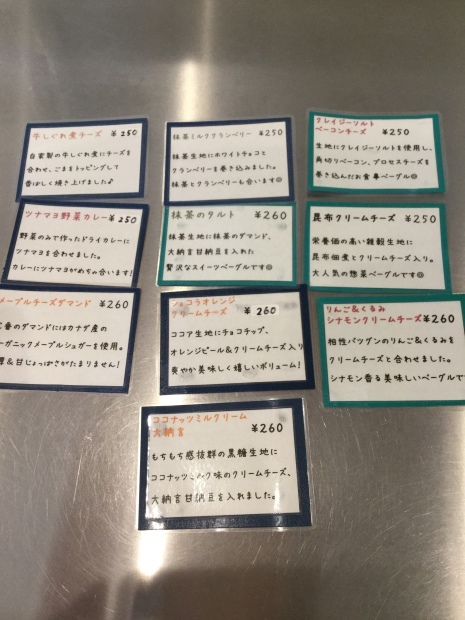 牛しぐれ煮チーズ ¥250
自家製の牛しぐれ煮にチーズを
合わせ、ごまをトッピングして
香ばしく焼き上げました♪
抹茶ミルククランベリー ¥250
抹茶生地にホワイトチョコと
クランベリーを巻き込みました。
抹茶とクランベリーも合います☺
クレイジーソルト
ベーコンチーズ ¥250
生地にクレイジーソルトを使用し、
角切りベーコン、プロセスチーズを
巻き込んだお食事ベーグル☺
ツナマヨ野菜カレー ¥250
野菜のみで作ったドライカレーに
ツナマヨを合わせました。
カレーにツナマヨがめちゃ合います!
抹茶のタルト ¥260
抹茶生地に抹茶のダマンド、
大納言甘納豆を入れた
贅沢なスイーツベーグルです☺
昆布クリームチーズ ¥250
栄養価の高い雑穀生地に
昆布佃煮とクリームチーズ入り。
大人気の惣菜ベーグルです☺
メープルチーズダマンド ¥260
番のダマンドにはカナダ産の
ーガニックメープルシュガーを使用。
厚&甘じょっぱさがたまりません!
ショコラオレンジ
クリームチーズ ¥260
ココア生地にチョコチップ、
オレンジピール&クリームチーズ入り
爽やか美味しく嬉しいボリューム!
りんご&くるみ
シナモンクリームチーズ ¥260
相性バツグンのりんご&くるみを
クリームチーズと合わせました。
シナモン香る美味しいベーグルで
ココナッツミルクリーム
大納言 ¥260
もちもち感抜群の黒糖生地に
ココナッツミルク味のクリームチーズ、
大納言甘納豆を入れました。